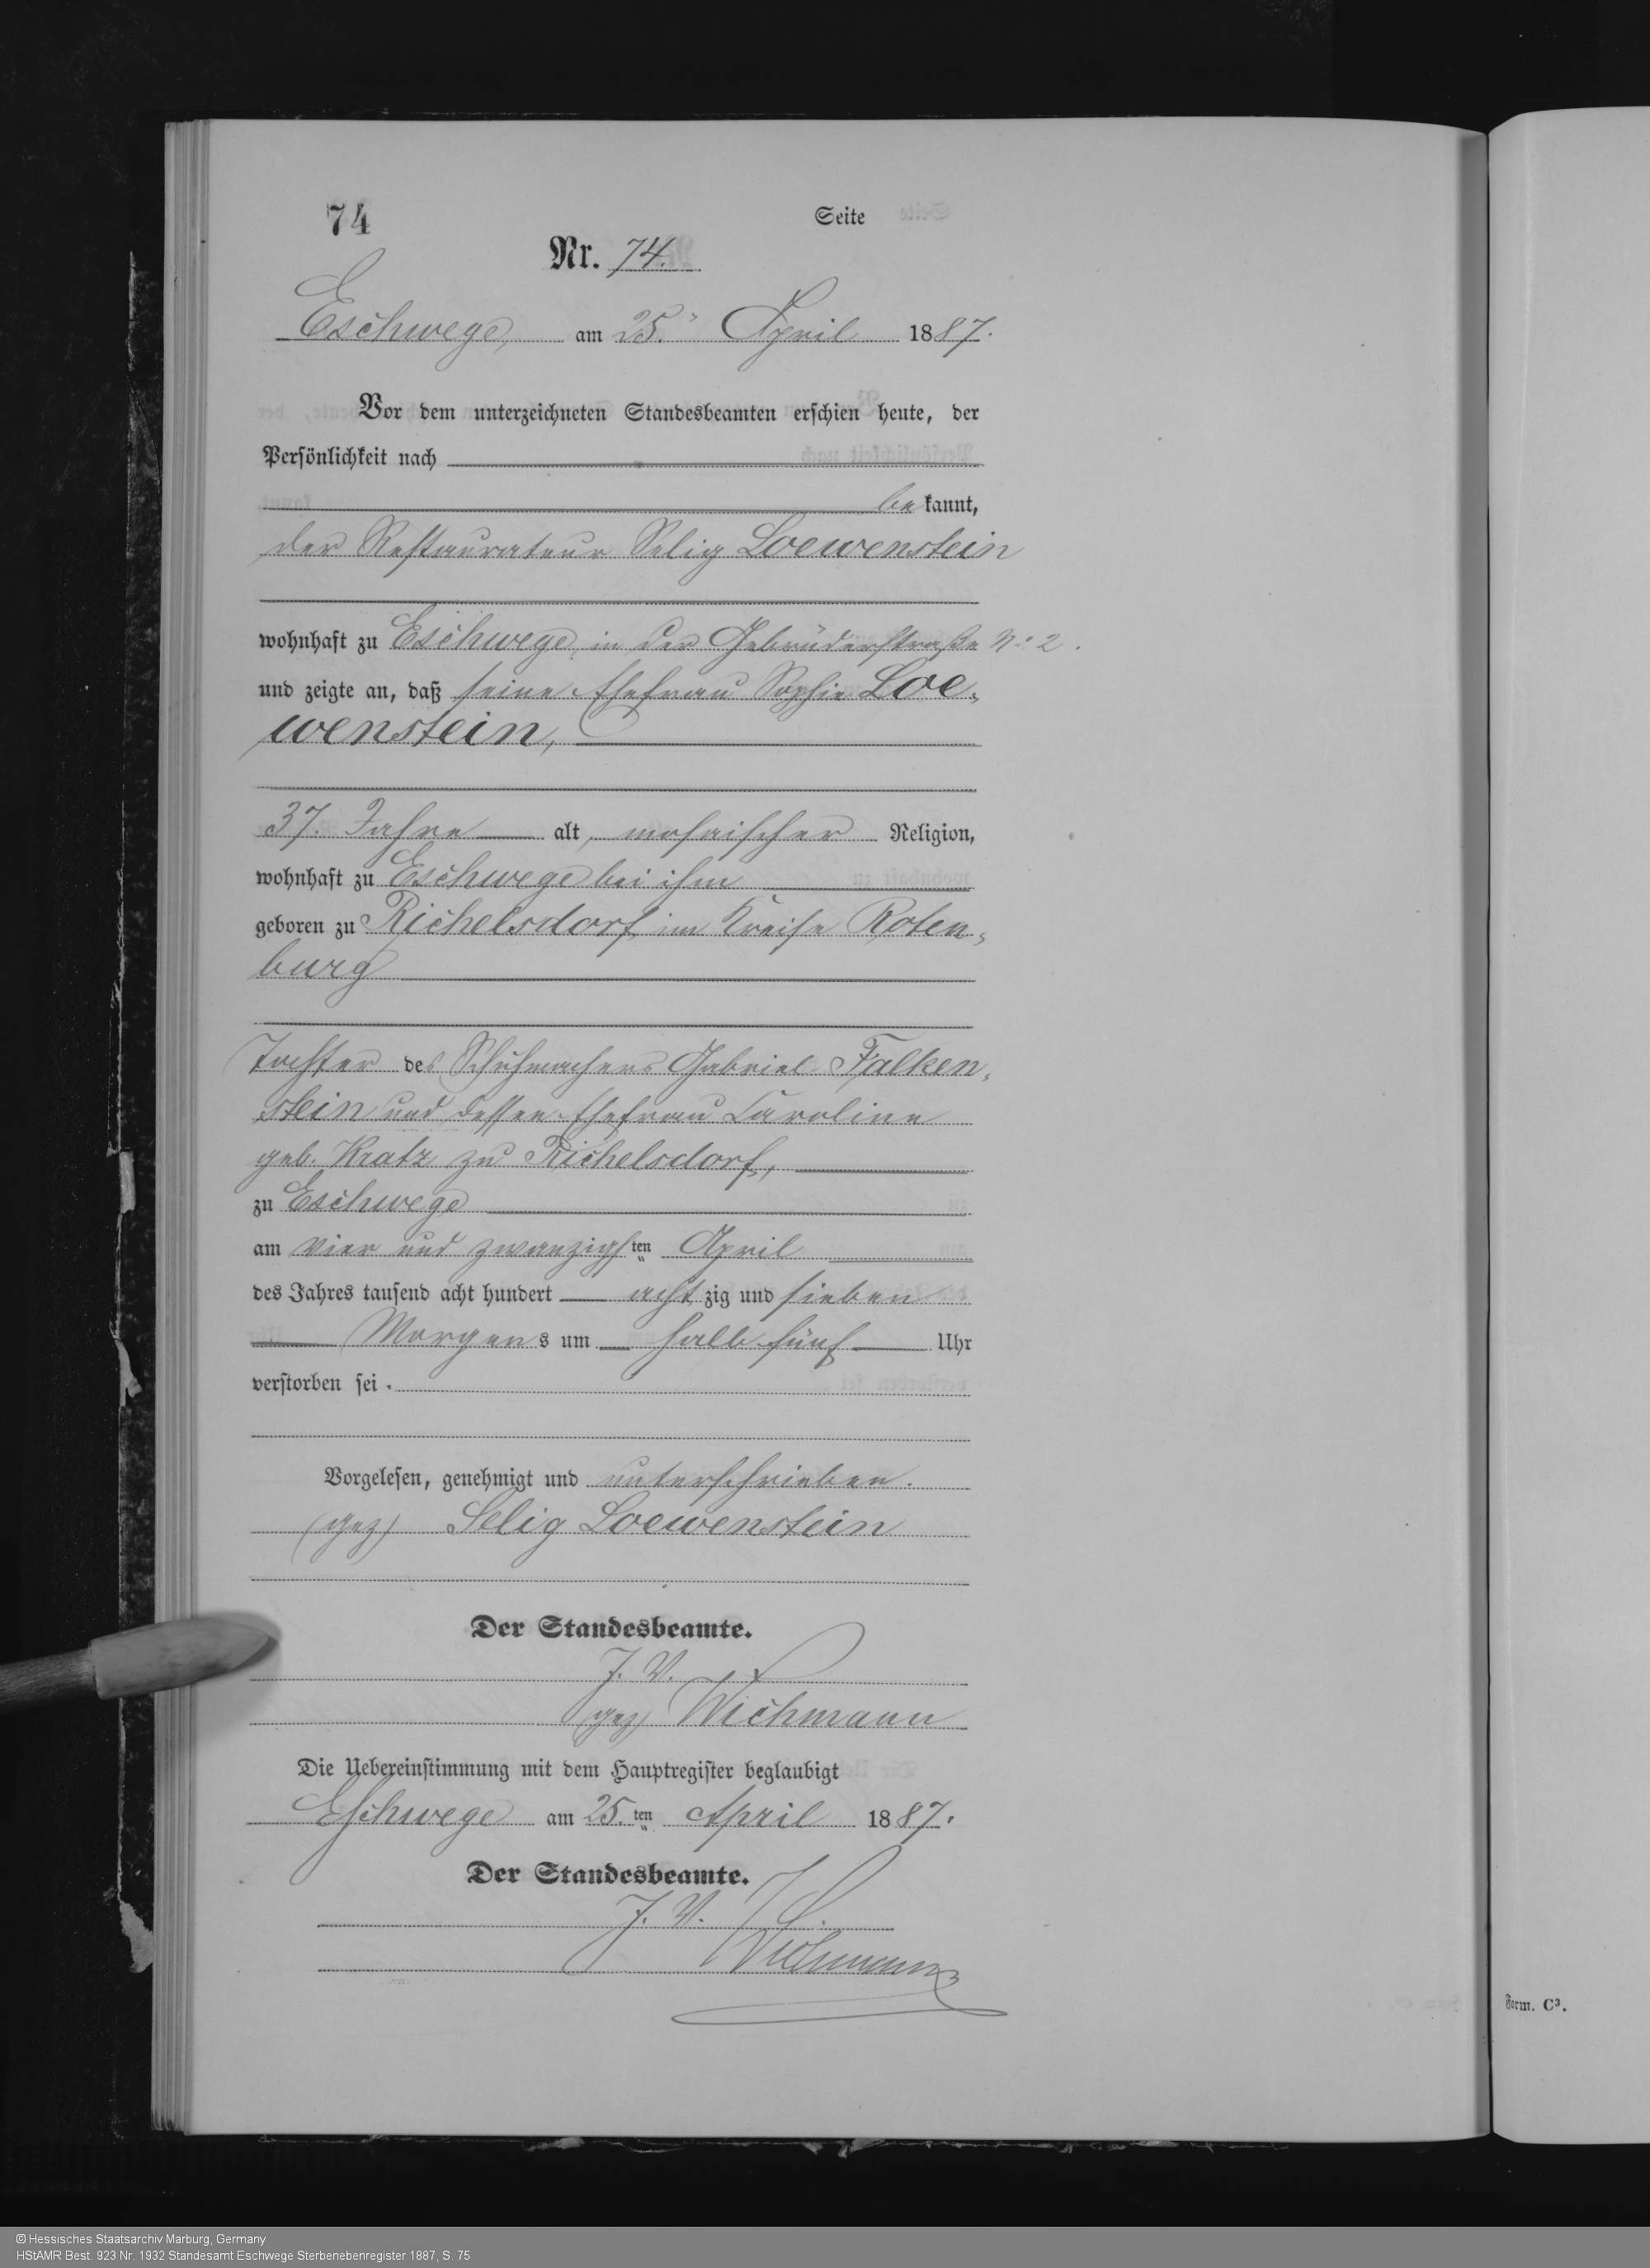 74
Seite
Nr. 74.
Eschwege, am 25. April 1887.
Vor dem unterzeichneten Standesbeamten erschien heute, der
Persönlichkeit nach
bekannt,
der Restaurateur Selig Loewenstein
wohnhaft zu Eschwege in der Gebrüderstraße No 2.
und zeigte an, daß seine Ehefrau Sophie Loe-
wenstein,
37. Jahre alt, mosaischer Religion,
wohnhaft zu Eschwege bei ihm
geboren zu Richelsdorf im Kreise Roten-
burg
Tochter des Schuhmachers Gabriel Falken-
stein und dessen Ehefrau Caroline
geb. Kratz zu Richelsdorf,
zu Eschwege
am vier und zwanzigsten April
des Jahres tausend acht hundert achtzig und sieben
Morgens um halb fünf Uhr
verstorben sei.
Vorgelesen, genehmigt und unterschrieben.
(gez) Selig Loewenstein
Der Standesbeamte.
J. V.
(gez) Wichmann
Die Uebereinstimmung mit dem Hauptregister beglaubigt
Eschwege am 25.ten April 1887.
Der Standesbeamte.
J. V.
Wichmann
Form. C³.
© Hessisches Staatsarchiv Marburg, Germany
HStAMR Best. 923 Nr. 1932 Standesamt Eschwege Sterbenebenregister 1887, S. 75